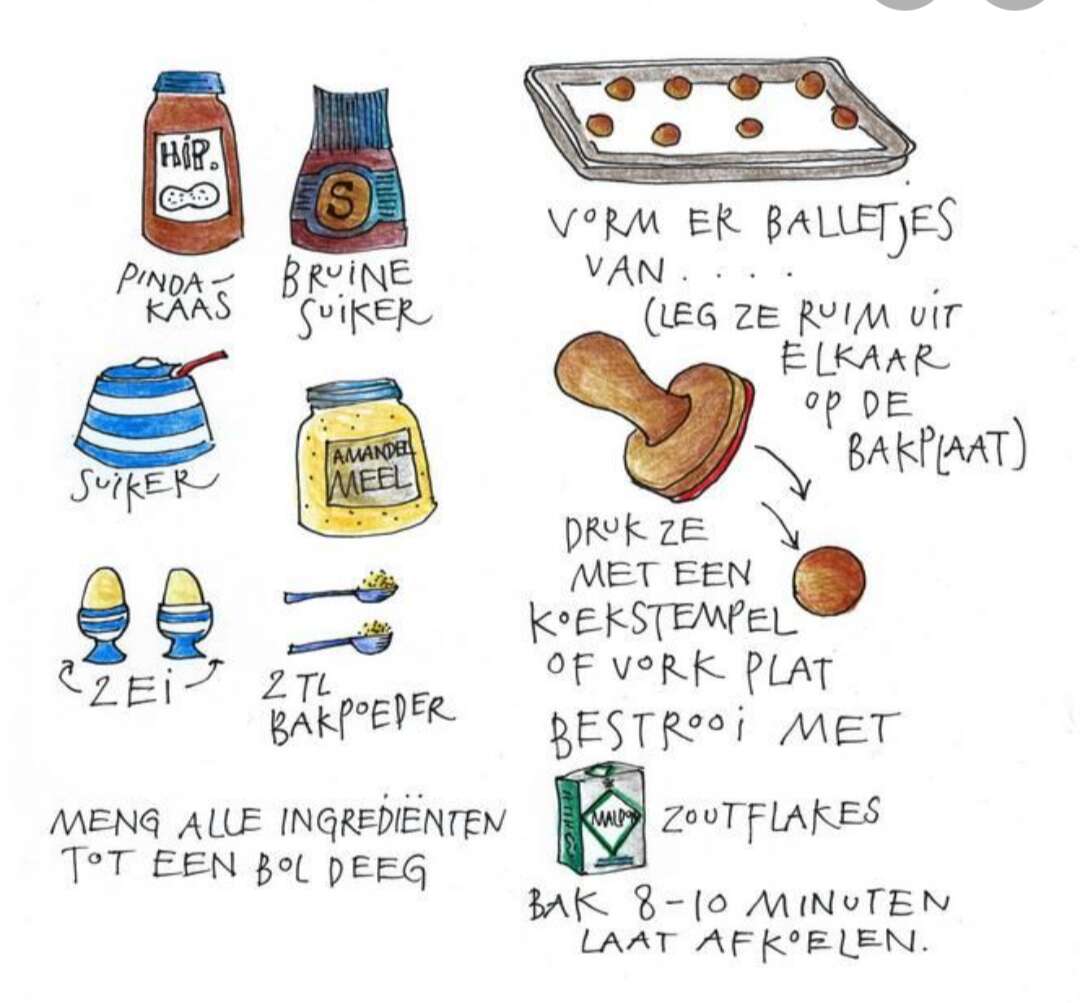 HIP.
PINDA-
KAAS
S
BRUINE
SUIKER
SUIKER
AMANDEL
MEEL
2 EI
2 TL
BAKPOEDER
MENG ALLE INGREDIËNTEN
TOT EEN BOL DEEG
VORM ER BALLETJES
VAN....
(LEG ZE RUIM UIT
ELKAAR
OP DE
BAKPLAAT)
DRUK ZE
MET EEN
KOEKSTEMPEL
OF VORK PLAT
BESTROOI MET
MALDON
ZOUTFLAKES
BAK 8-10 MINUTEN
LAAT AFKOELEN.